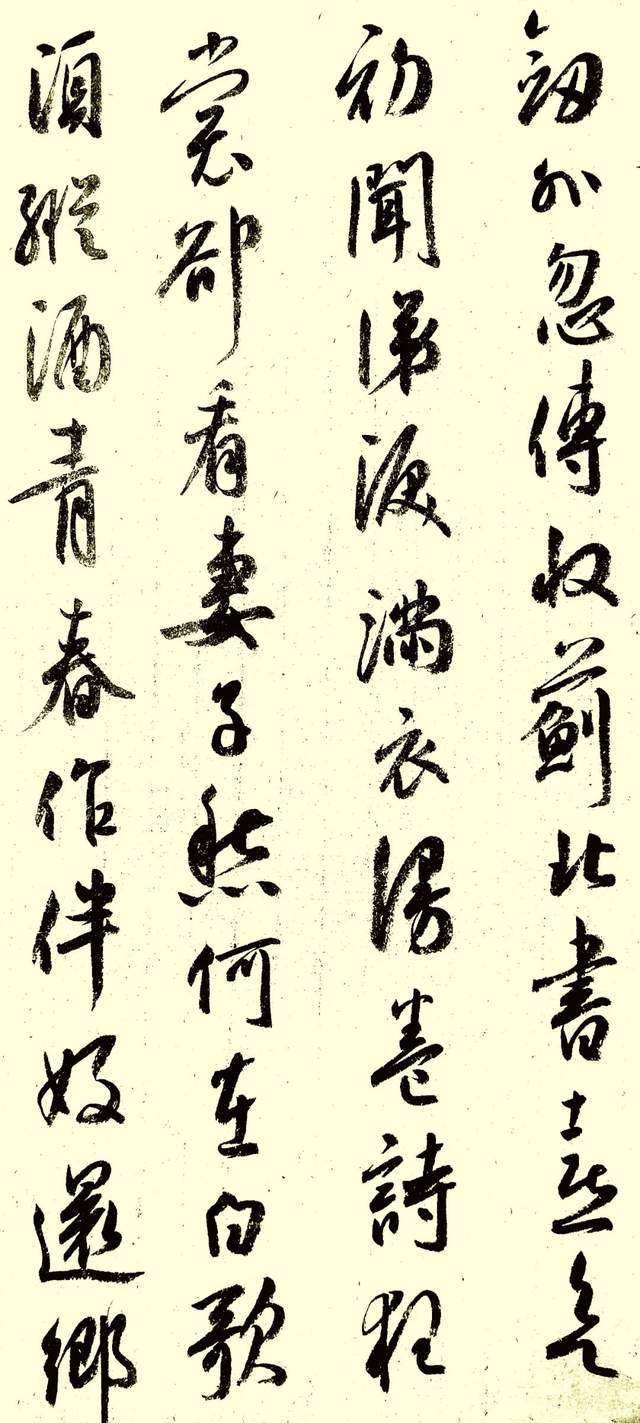 劒外忽傳收薊北書喜欲
初聞涕淚滿衣漫卷詩狂
裳卻看妻子愁何在白歌
須縱酒青春作伴好還鄉